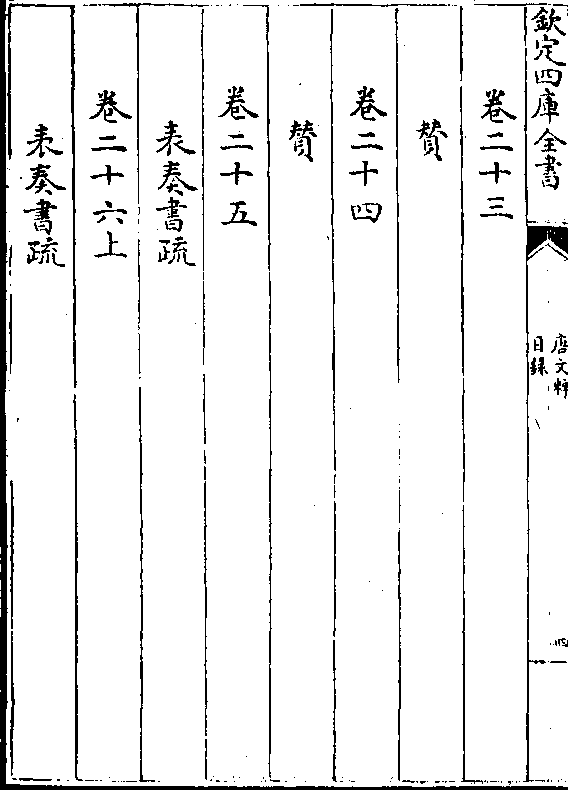 欽定四庫全書
唐文粹
目錄
卷二十三
賛
卷二十四
賛
卷二十五
表奏書疏
卷二十六上
表奏書疏